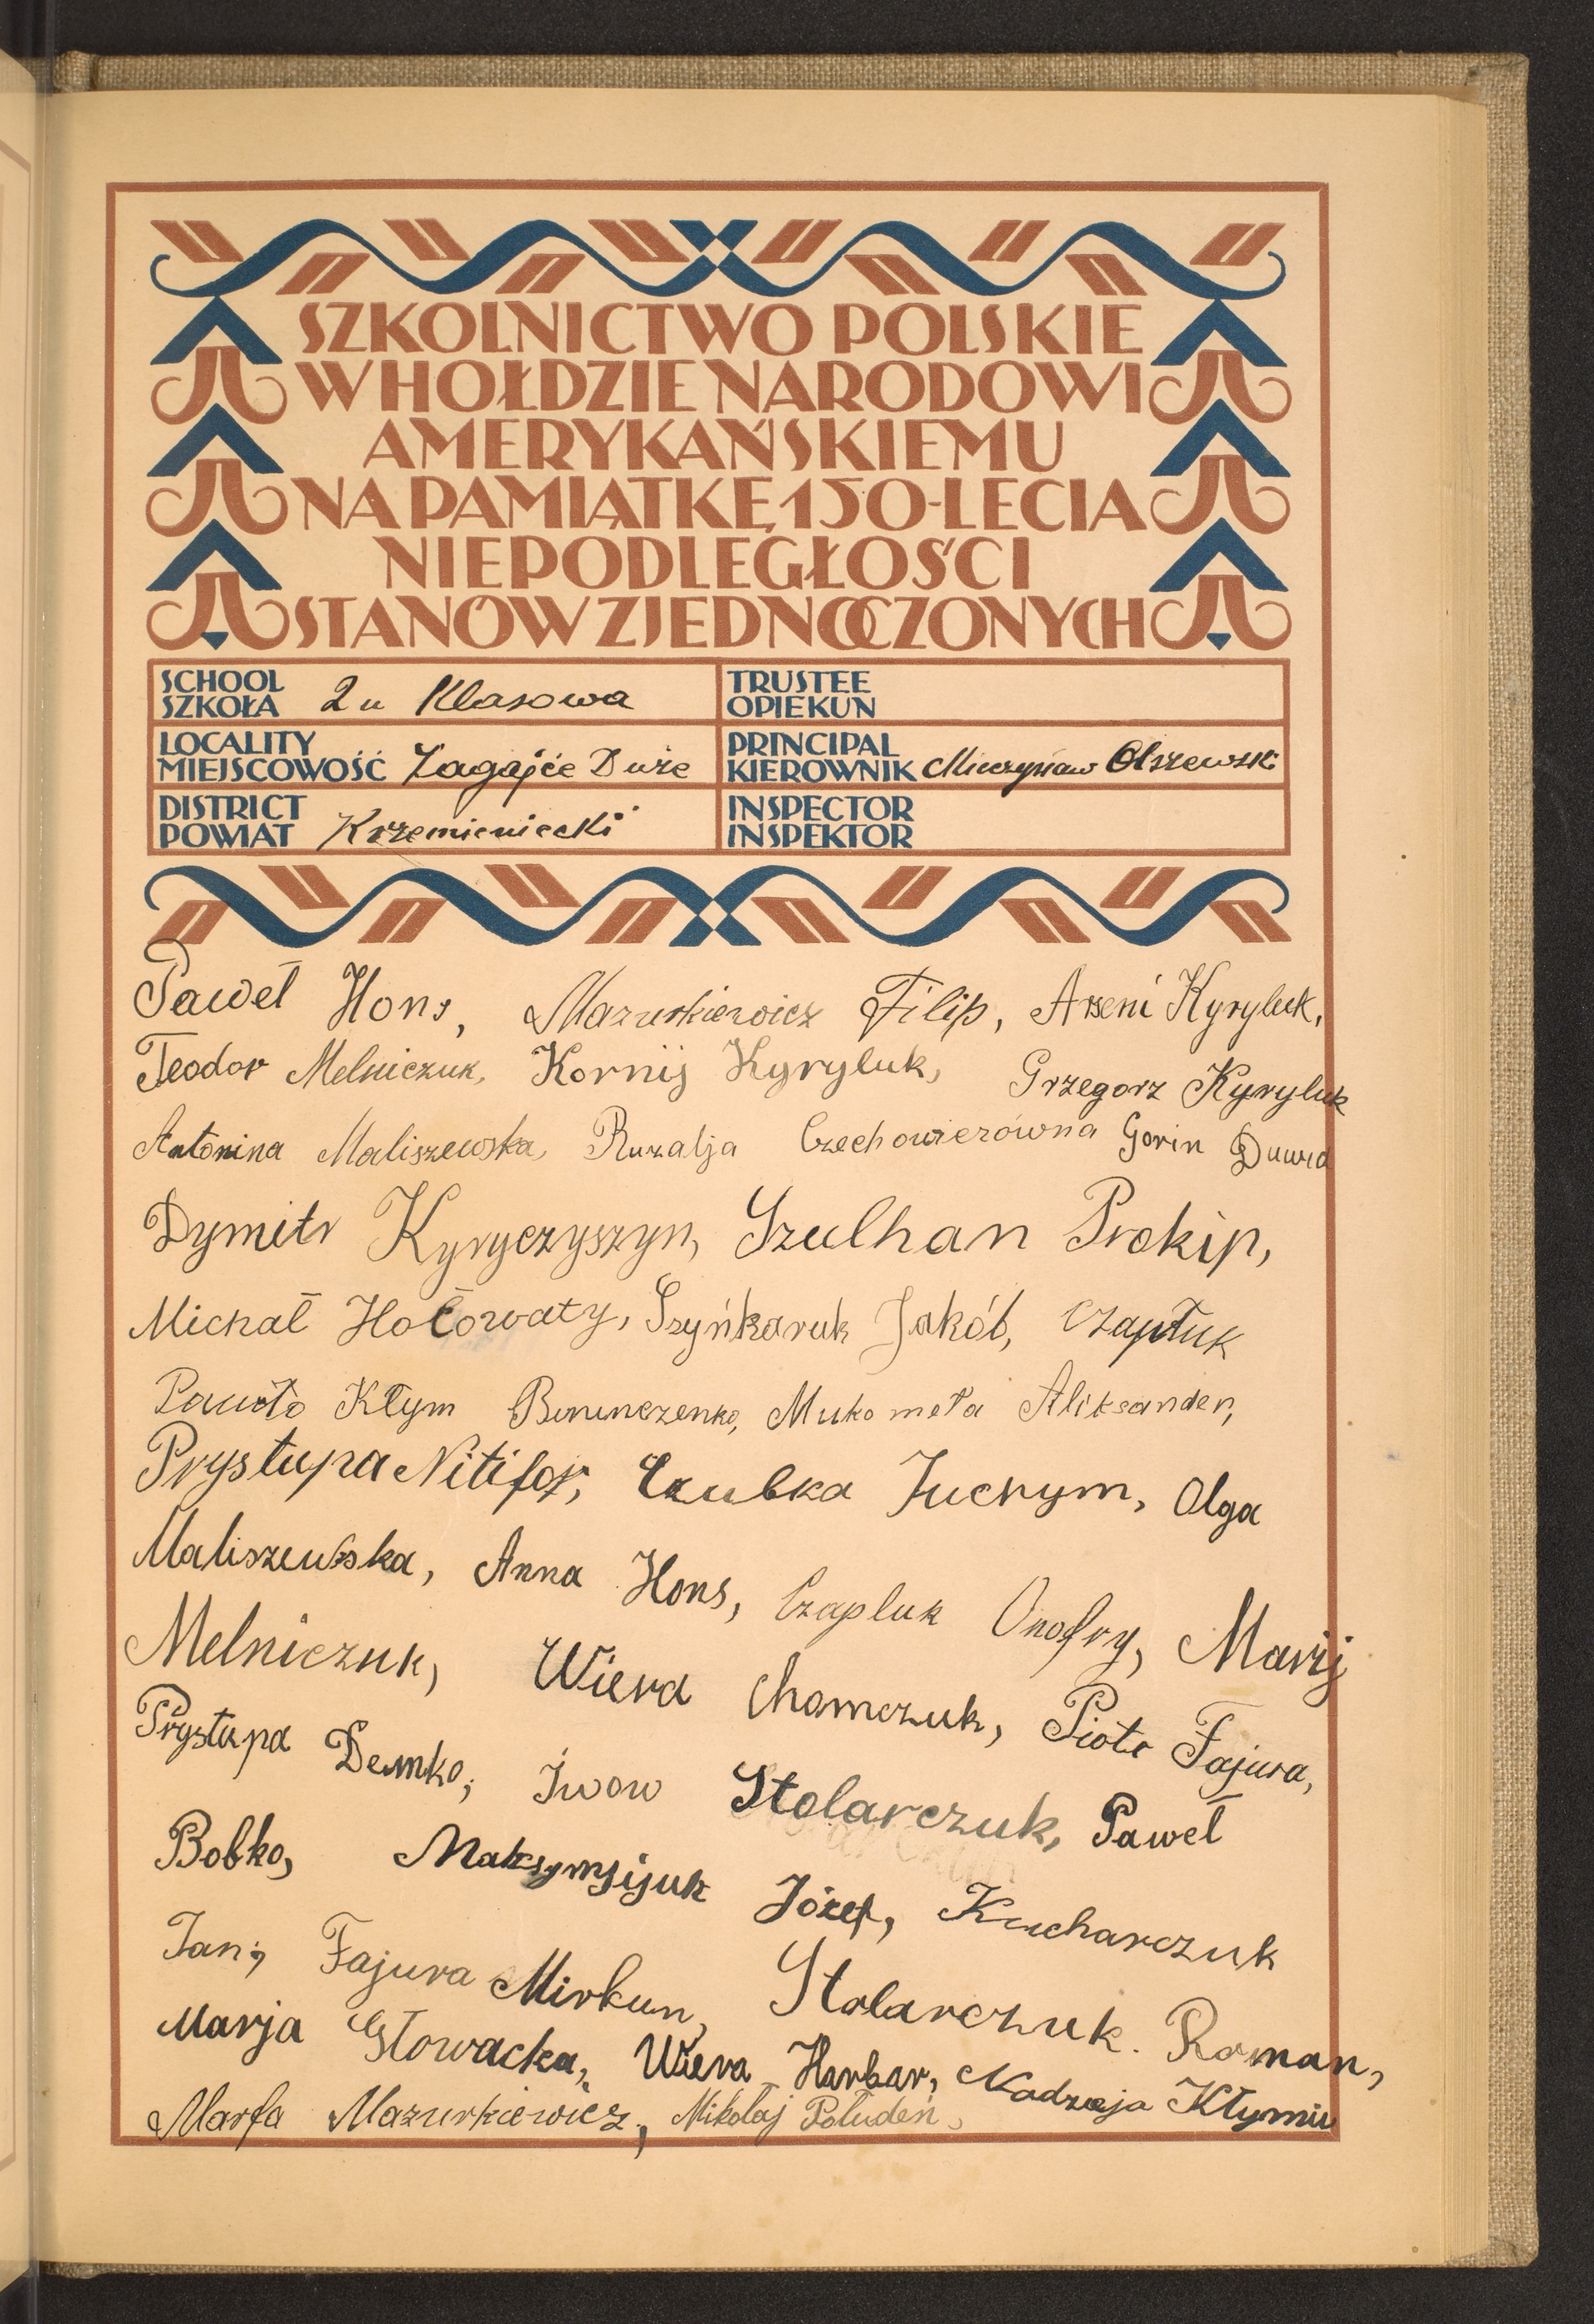 SZKOLNICTWO POLSKIE
W HOŁDZIE NARODOWI
AMERYKAŃSKIEMU
NA PAMIĄTKĘ 150-LECIA
NIEPODLEGŁOŚCI
STANÓW ZJEDNOCZONYCH
SCHOOL
SZKOŁA 2 u Klasowa
TRUSTEE
OPIEKUN
LOCALITY
MIEJSCOWOŚĆ Zagajće Duże
PRINCIPAL
KIEROWNIK Mieczysław Olszewski
DISTRICT
POWIAT Krzemieniecki
INSPECTOR
INSPEKTOR
Paweł Hons, Mazurkiewicz Filip, Arseni Kyryluk,
Teodor Melniczuk, Kornij Kyryluk, Grzegorz Kyryluk
Antonina Maliszewska, Ruzalja Czechowiezówna Gorin
Dymitr Kyryczyszyn, Szulhan Prokip,
Michał Hołowaty, Szyńkaruk Jakób, Czapłuk
Pawło Kłym Mukomeła Aliksander,
Prystupa Nitifor, Czubka Juchym, Olga
Maliszewska, Anna Hons, Czapluk Onofry, Marij
Melniczuk, Wiera Chomczuk, Piotr Fajura,
Prystupa Demko, Iwow Stolarczuk, Paweł
Bobko, Józef, Kucharczuk
Jan, Fajura Mirkun, Stolarczuk. Roman,
Marja Słowacka, Wiera Harbar, Nadzeja Kłymiu
Marfa Mazurkiewicz, Mikołaj Połudeń,